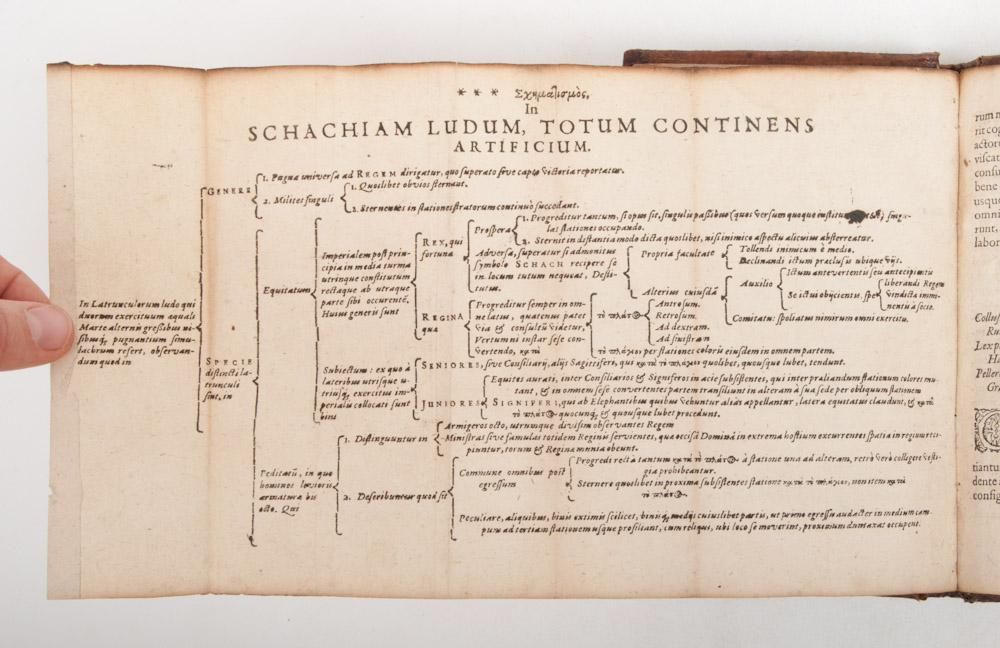 * * * Σχηματισμὸς,
In
SCHACHIAM LUDUM, TOTUM CONTINENS
ARTIFICIUM.
In Latrunculorum ludo qui
duorum exercituum aequali
Marte alternis gressibus vi-
sibusq; pugnantium simu-
lachrum refert, observan-
dum quod in
GENERE
1. Pugna universa ad REGEM dirigatur, quo superato sive capto victoria reportatur.
2. Milites singuli
1. Quoslibet obvios sternant.
2. Sternentes in stationes stratorum continuò succedant.
SPECIE
distincti la-
trunculi
sint, in
Equitatum
Imperialem post prin-
cipia in media turma
utrinque constitutum
rectaque ab utraque
parte sibi occurentē.
Huius generis sunt
REX, qui
fortuna
Prospera
1. Progreditur tantum, si opus sit, singulis passibus (quos versum quoque singu-
las stationes occupando.
2. Sternit in distantia modo dicta quoslibet, nisi inimico aspectu alicuius absterreatur.
Adversa, superatur si admonitus
symbolo SCHACH recipere se
in locum tutum nequeat, Desti-
tutus.
Propria facultate
Tollendi inimicum è medio.
Declinandi ictum praeclusis ubique viis.
Alterius cuiusdā
Auxilio
Ictum antevertentis seu antecipantis
Se ictui obijcientis, spe
liberandi Regem
Vindicta immi-
nentis à socio.
Comitatu: spoliatus nimirum omni exercitu.
REGINA
qua
Progreditur semper in om-
ne latus, quatenus patet
via & consultū videtur,
Vertumni instar sese con-
vertendo, κατὰ
τὸ πλάτος
Antrorsum.
Retrorsum.
Ad dextram.
Ad sinistram
τὸ πλάγιον per stationes coloris eiusdem in omnem partem.
Subiectum: ex quo à
lateribus utrisque u-
triusq; exercitus im-
perialis collocati sunt
binis
SENIORES, sive Consiliarij, alijs Sagittiferi, qui κατὰ τὸ πλάγιον quoslibet, quousque lubet, tendunt.
JUNIORES
Equites aurati, inter Consiliarios & Signiferos in acie subsistentes, qui inter praeliandum stationum colores mu-
tant, & in omnem sese convertentes partem transiliunt in alteram à sua sede per obliquum stationem
SIGNIFERI, qui ab Elephantibus quibus vehuntur aliàs appellantur, latera equitatus claudunt, & κατὰ
τὸ πλάτος quocunq; & quousque lubet procedunt.
Peditatū, in quo
homines levioris
armatura bis
octo. Qui
1. Distinguuntur in
Armigeros octo, utrumque divisim observantes Regem
Ministras sive famulas totidem Reginis servientes, qua occisâ Dominâ in extrema hostium excurrentes spatia
piuntur, torum & Regina munia obeunt.
2. Describuntur quod sit
Commune omnibus post
egressum
Progredi rectà tantum κατὰ τὸ πλάτος à statione una ad alteram, retrò verò colligere vesti-
gia prohibeantur.
Sternere quoslibet in proxima subsistentes statione κατὰ τὸ πλάγιον, non item κατὰ
τὸ πλάτος.
Peculiare, aliquibus, binis extimis scilicet, binisq; medijs cuiuslibet partis, ut primo egressu audacter in medium cam-
pum ad tertiam stationem usque prosiliant, cum reliqui, ubi loco se moverint, proximum duntaxat occupent.
rum n
rit co
actor
viscat
consu
bene
usque
omni
runt,
labor
Collos
Ru
Lex p
Ha
Peller
Gra
tiantu
dente
config